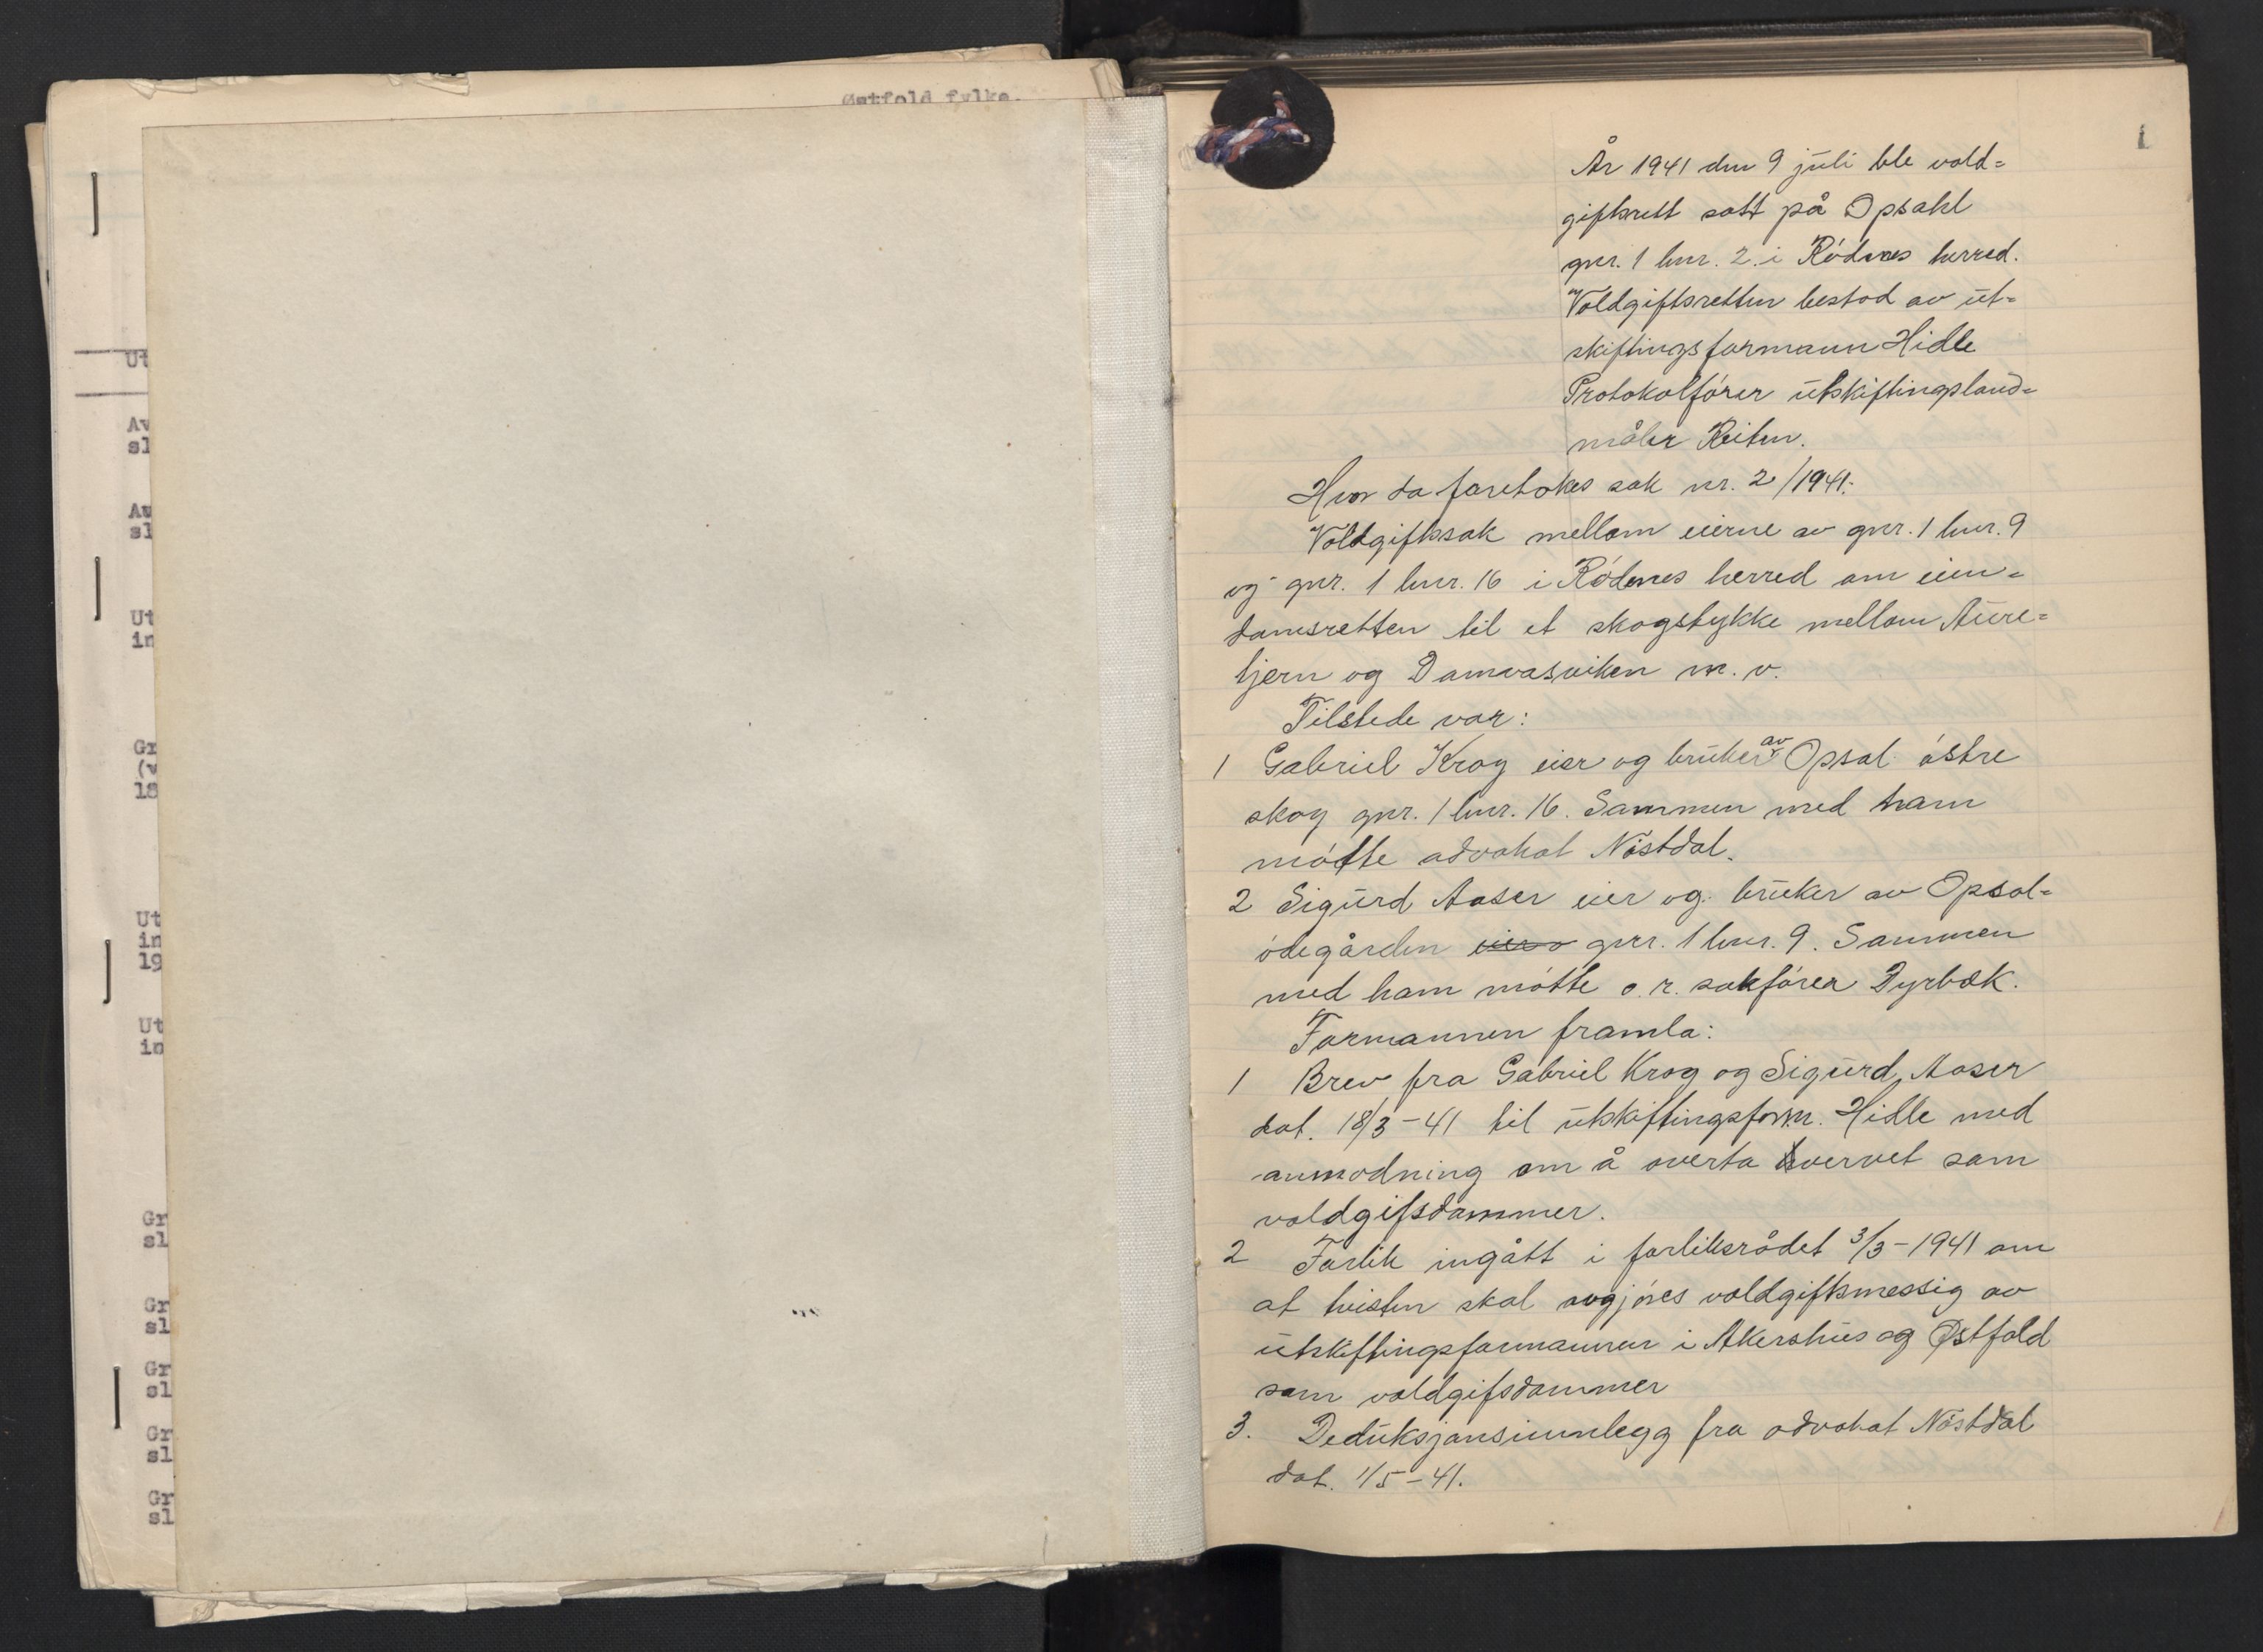 Østfold fylke.
Ut
Av
sl
Au
sl
Ut
in
Gr
18
Ut
in
19
Ut
in
Gr
sl
Gr
sl
Gr
sl
Gr
sl
Gr
sl
1
År 1941 den 9 juli ble vold=
giftsrett satt på Opsahl
gnr. 1 bnr. 2 i Rödenes herred.
Voldgiftsretten bestod av ut=
skiftingsformann Hidle
Protokolförer utskiftingsland=
måler Reiten.
Hvor da foretokes sak nr. 2/1941:
Voldgiftssak mellom eierne av gnr. 1 bnr. 9
og gnr. 1 bnr. 16 i Rödenes herred om eien=
domsretten til et skogstykke mellom Aure=
tjern og Damvasviken m. v.
Tilstede var:
1 Gabriel Krog eier og bruker av Opsal östre
skog gnr. 1 bnr. 16. Sammen med ham
mötte advokat Nöstdal.
2 Sigurd Aaser eier og bruker av Opsal=
ödegården gnr. 1 bnr. 9. Sammen
med ham mötte o. r. sakförer Dyrbæk.
Formannen framla:
1 Brev fra Gabriel Krog og Sigurd Aaser
dat. 18/3-41 til utskiftingsform. Hidle med
anmodning om å overta hvervet som
voldgifsdommer.
2 Forlik ingått i forliksrådet 3/3-1941 om
at tvisten skal avgjöres voldgiftsmessig av
utskiftingsformannen i Akershus og Østfold
som voldgifsdommer
3. Deduksjonsinnlegg fra advokat Nöstdal
dat. 1/5-41.